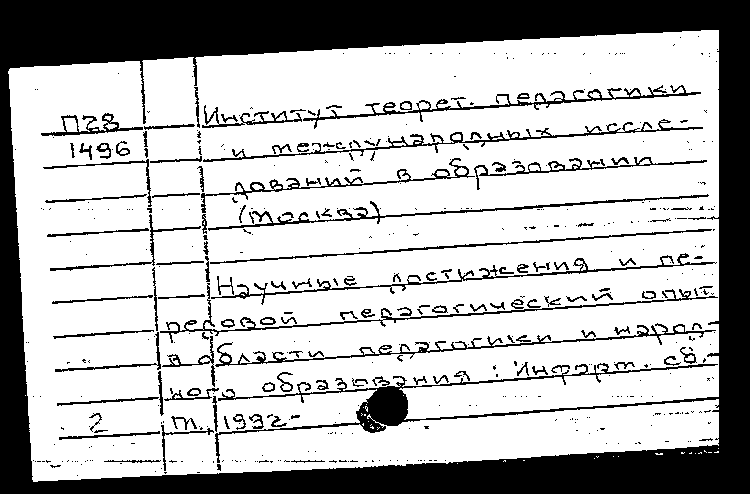 П28 Институт теорет. педагогики
1496 и международных иссле-
дований в образовании
(Москва)
Научные достижения и пе-
редовой педагогический опыт
в области педагогики и народ-
ного образования : Информ. сб.-
2 М., 1992-